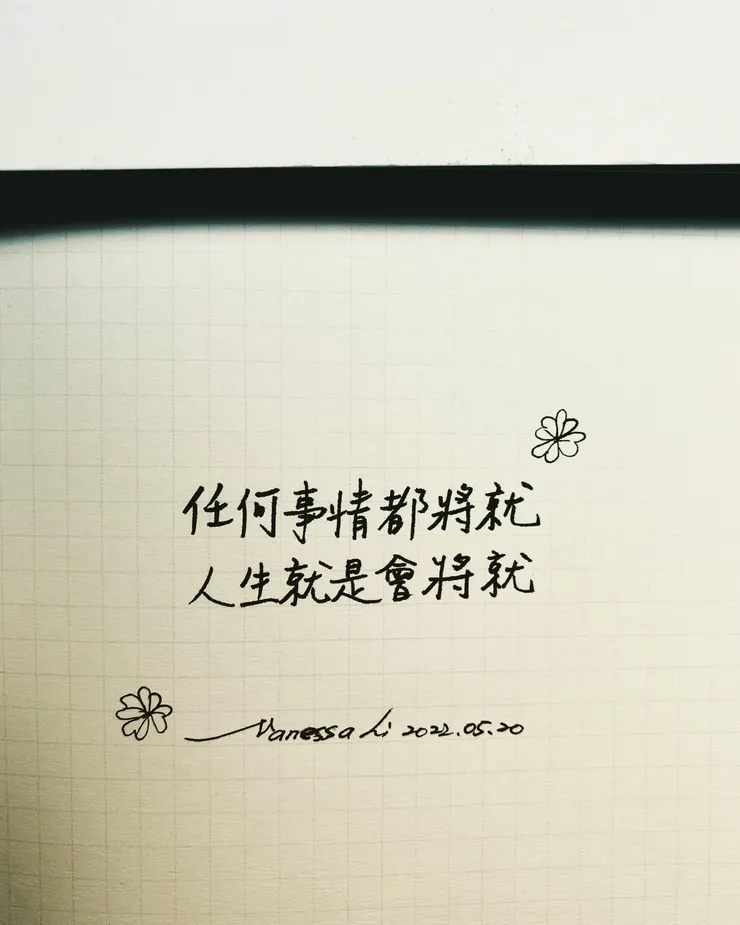 任何事情都將就
人生就是會將就
Vanessa Li 2022.05.20